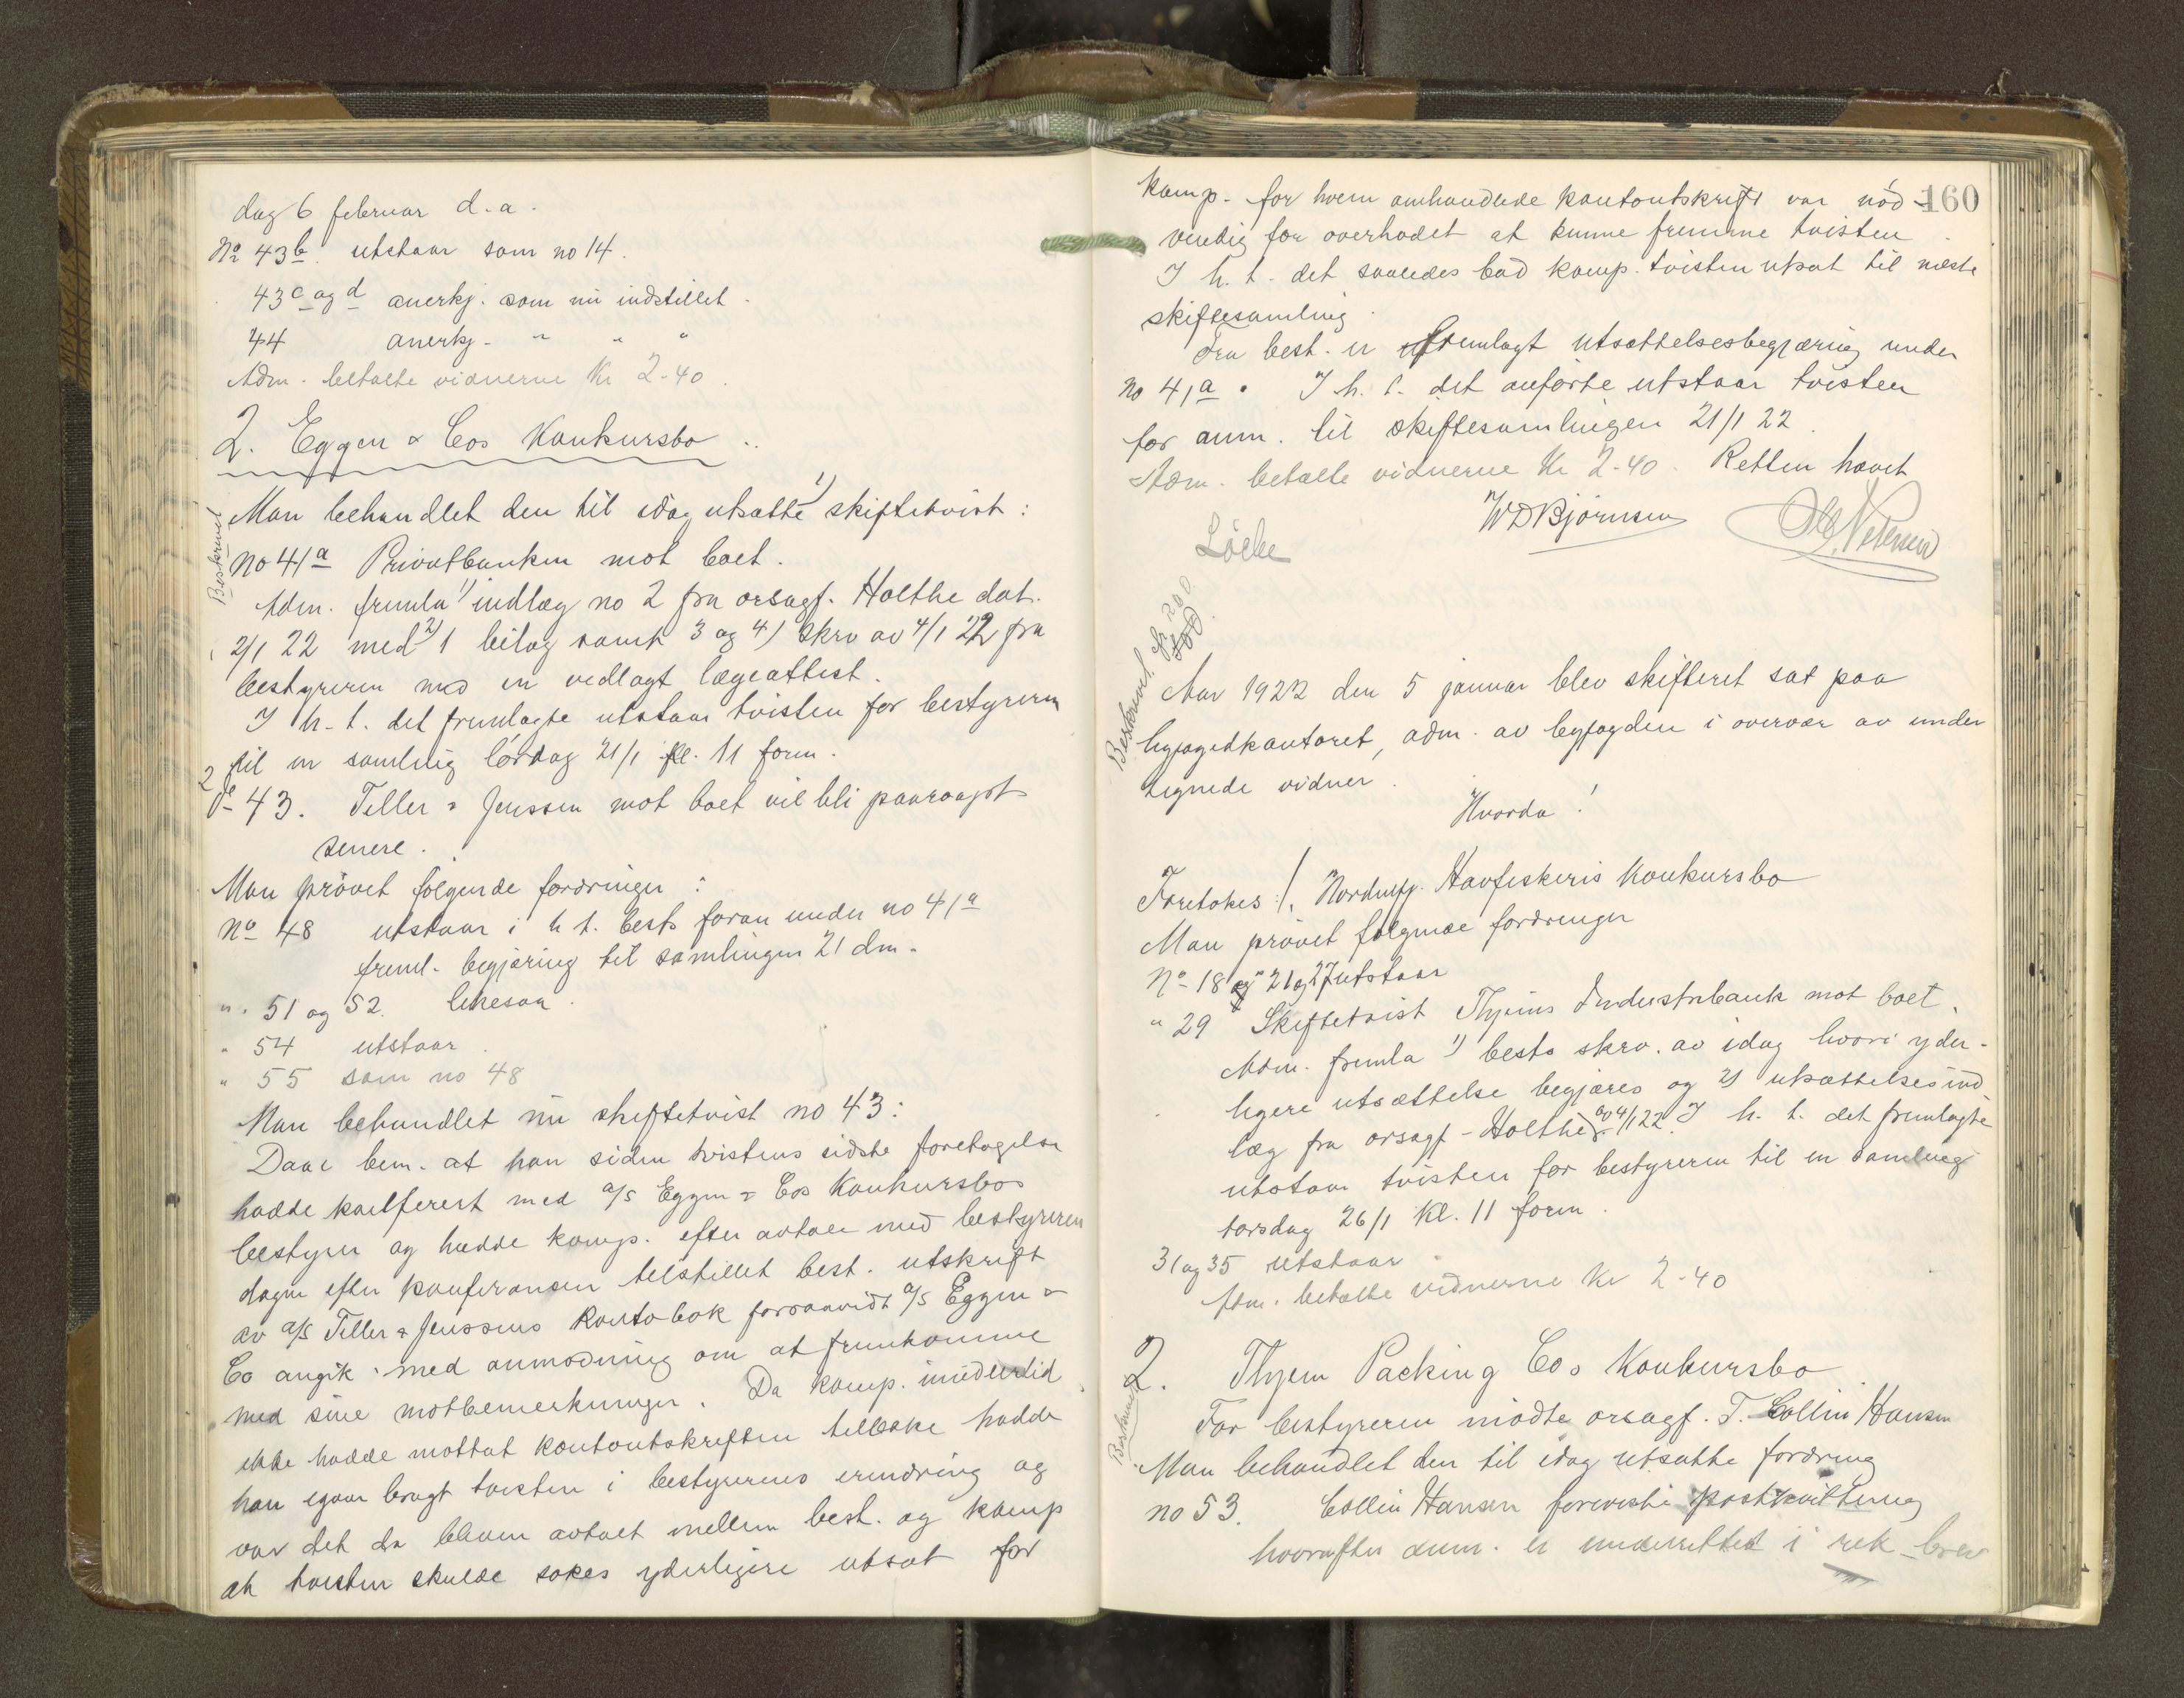 dag 6 februar d.a.
No 43b. utstaar som no 14.
43c og d anerkj. som nu indstillet.
44 anerkj. " " "
Adm. betalte vidnerne Kr 2-40.
2. Eggen & Cos Konkursbo.
Beskrevet
Man behandlet den til idag utsatte 1) skiftetvist:
No 41a Privatbanken mot boet.
Adm. fremla 1) indlæg no 2 fra orsagf. Holthe dat.
2/1 22 med 2) 1 bilag samt 3 og 4) skrv av 4/1 22 fra
bestyreren med en vedlagt lægeattest.
I h.t. det fremlagte utstaar tvisten for bestyreren
til en samling lørdag 21/1 kl. 11 form.
2
43. Teller & Jenssen mot boet vil bli paaropt
senere.
Man prøvet følgende fordringer:
No 48 utstaar i h t. bests foran under no 41a
freml. begjæring til samlingen 21 dm.
" 51 og 52. likesaa.
" 54 utstaar.
" 55 som no 48
Man behandlet nu skiftetvist no 43:
Daae bem. at han siden tvistens sidste foretagelse
hadde konferert med a/s Eggen & Cos Konkursbos
bestyrer og hadde komp. efter avtale med bestyreren
dagen efter konferansen tilstillet best. utskrift
av a/s Teller & Jenssens Kontobok forsaavidt a/s Eggen &
Co angik med anmodning om at fremkomme
med sine motbemerkninger. Da komp. imidlertid
ikke hadde mottat kontoutskriften tilbake hadde
han igaar bragt tvisten i bestyrerens erindring og
var det da bleven avtalt mellem best. og komp
at tvisten skulde søkes yderligere utsat for
160
komp. for hvem omhandlede kontoutskrift var nød-
vendig for overhodet at kunne fremme tvisten.
I h.t. det saaledes bad komp. tvisten utsat til næste
skiftesamling.
Fra best. er fremlagt utsættelsesbegjæring under
no 41a. I h.t. det anførte utstaar tvisten
for anm. til skiftesamlingen 21/1 22.
Adm. betalte vidnerne Kr 2-40. Retten hævet
W D Bjørnsen
Petersen
Löche
Beskrevet.
Aar 1922 den 5 januar blev skifteret sat paa
byfogedkontoret, adm. av byfogden i overvær av under
tegnede vidner.
Hvorda!
Foretokes: 1. Nordenfj. Havfiskeris Konkursbo
Man prøvet følgende fordringer
No 18 og 21 og 27 utstaar
" 29 Skiftetvist Thjems Industribank mot boet.
Adm. fremla 1) bests skrv. av idag hvori yder-
ligere utsættelse begjæres og 2) utsættelsesind
læg fra orsagf. Holthe av 4/1 22. I h.t. det fremlagte
utstaar tvisten for bestyreren til en samling
torsdag 26/1 Kl. 11 form.
31 og 35 utstaar.
Adm. betalte vidnerne Kr 2-40
2. Thjem Packing Cos Konkursbo.
Beskrevet
For bestyreren mødte orsagf. T. Collin Hansen
Man behandlet den til idag utsatte fordring
no 53. Collin Hansen foreviste postkvittering
hvorefter anm. er underrettet i rek. brev